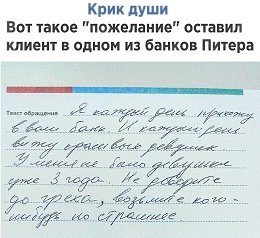 Крик души
Вот такое "пожелание" оставил
клиент в одном из банков Питера
Текст обращения Я каждый день прихожу
в ваш банк. И каждый день
вижу красивых девушек.
У меня не было девушки
уже 3 года. Не доводите
до греха, возьмите кого-
нибудь по страшнее